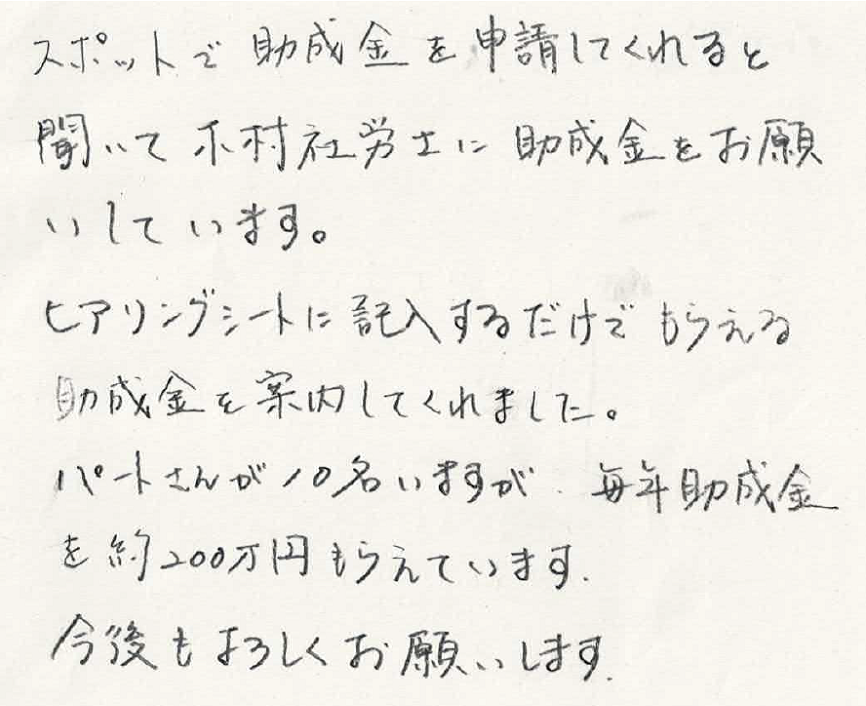 スポットで助成金を申請してくれると
聞いて木村社労士に助成金をお願
いしています。
ヒアリングシートに記入するだけでもらえる
助成金を案内してくれました。
パートさんが10名いますが、毎年助成金
を約200万円もらえています.
今後もよろしくお願いします.